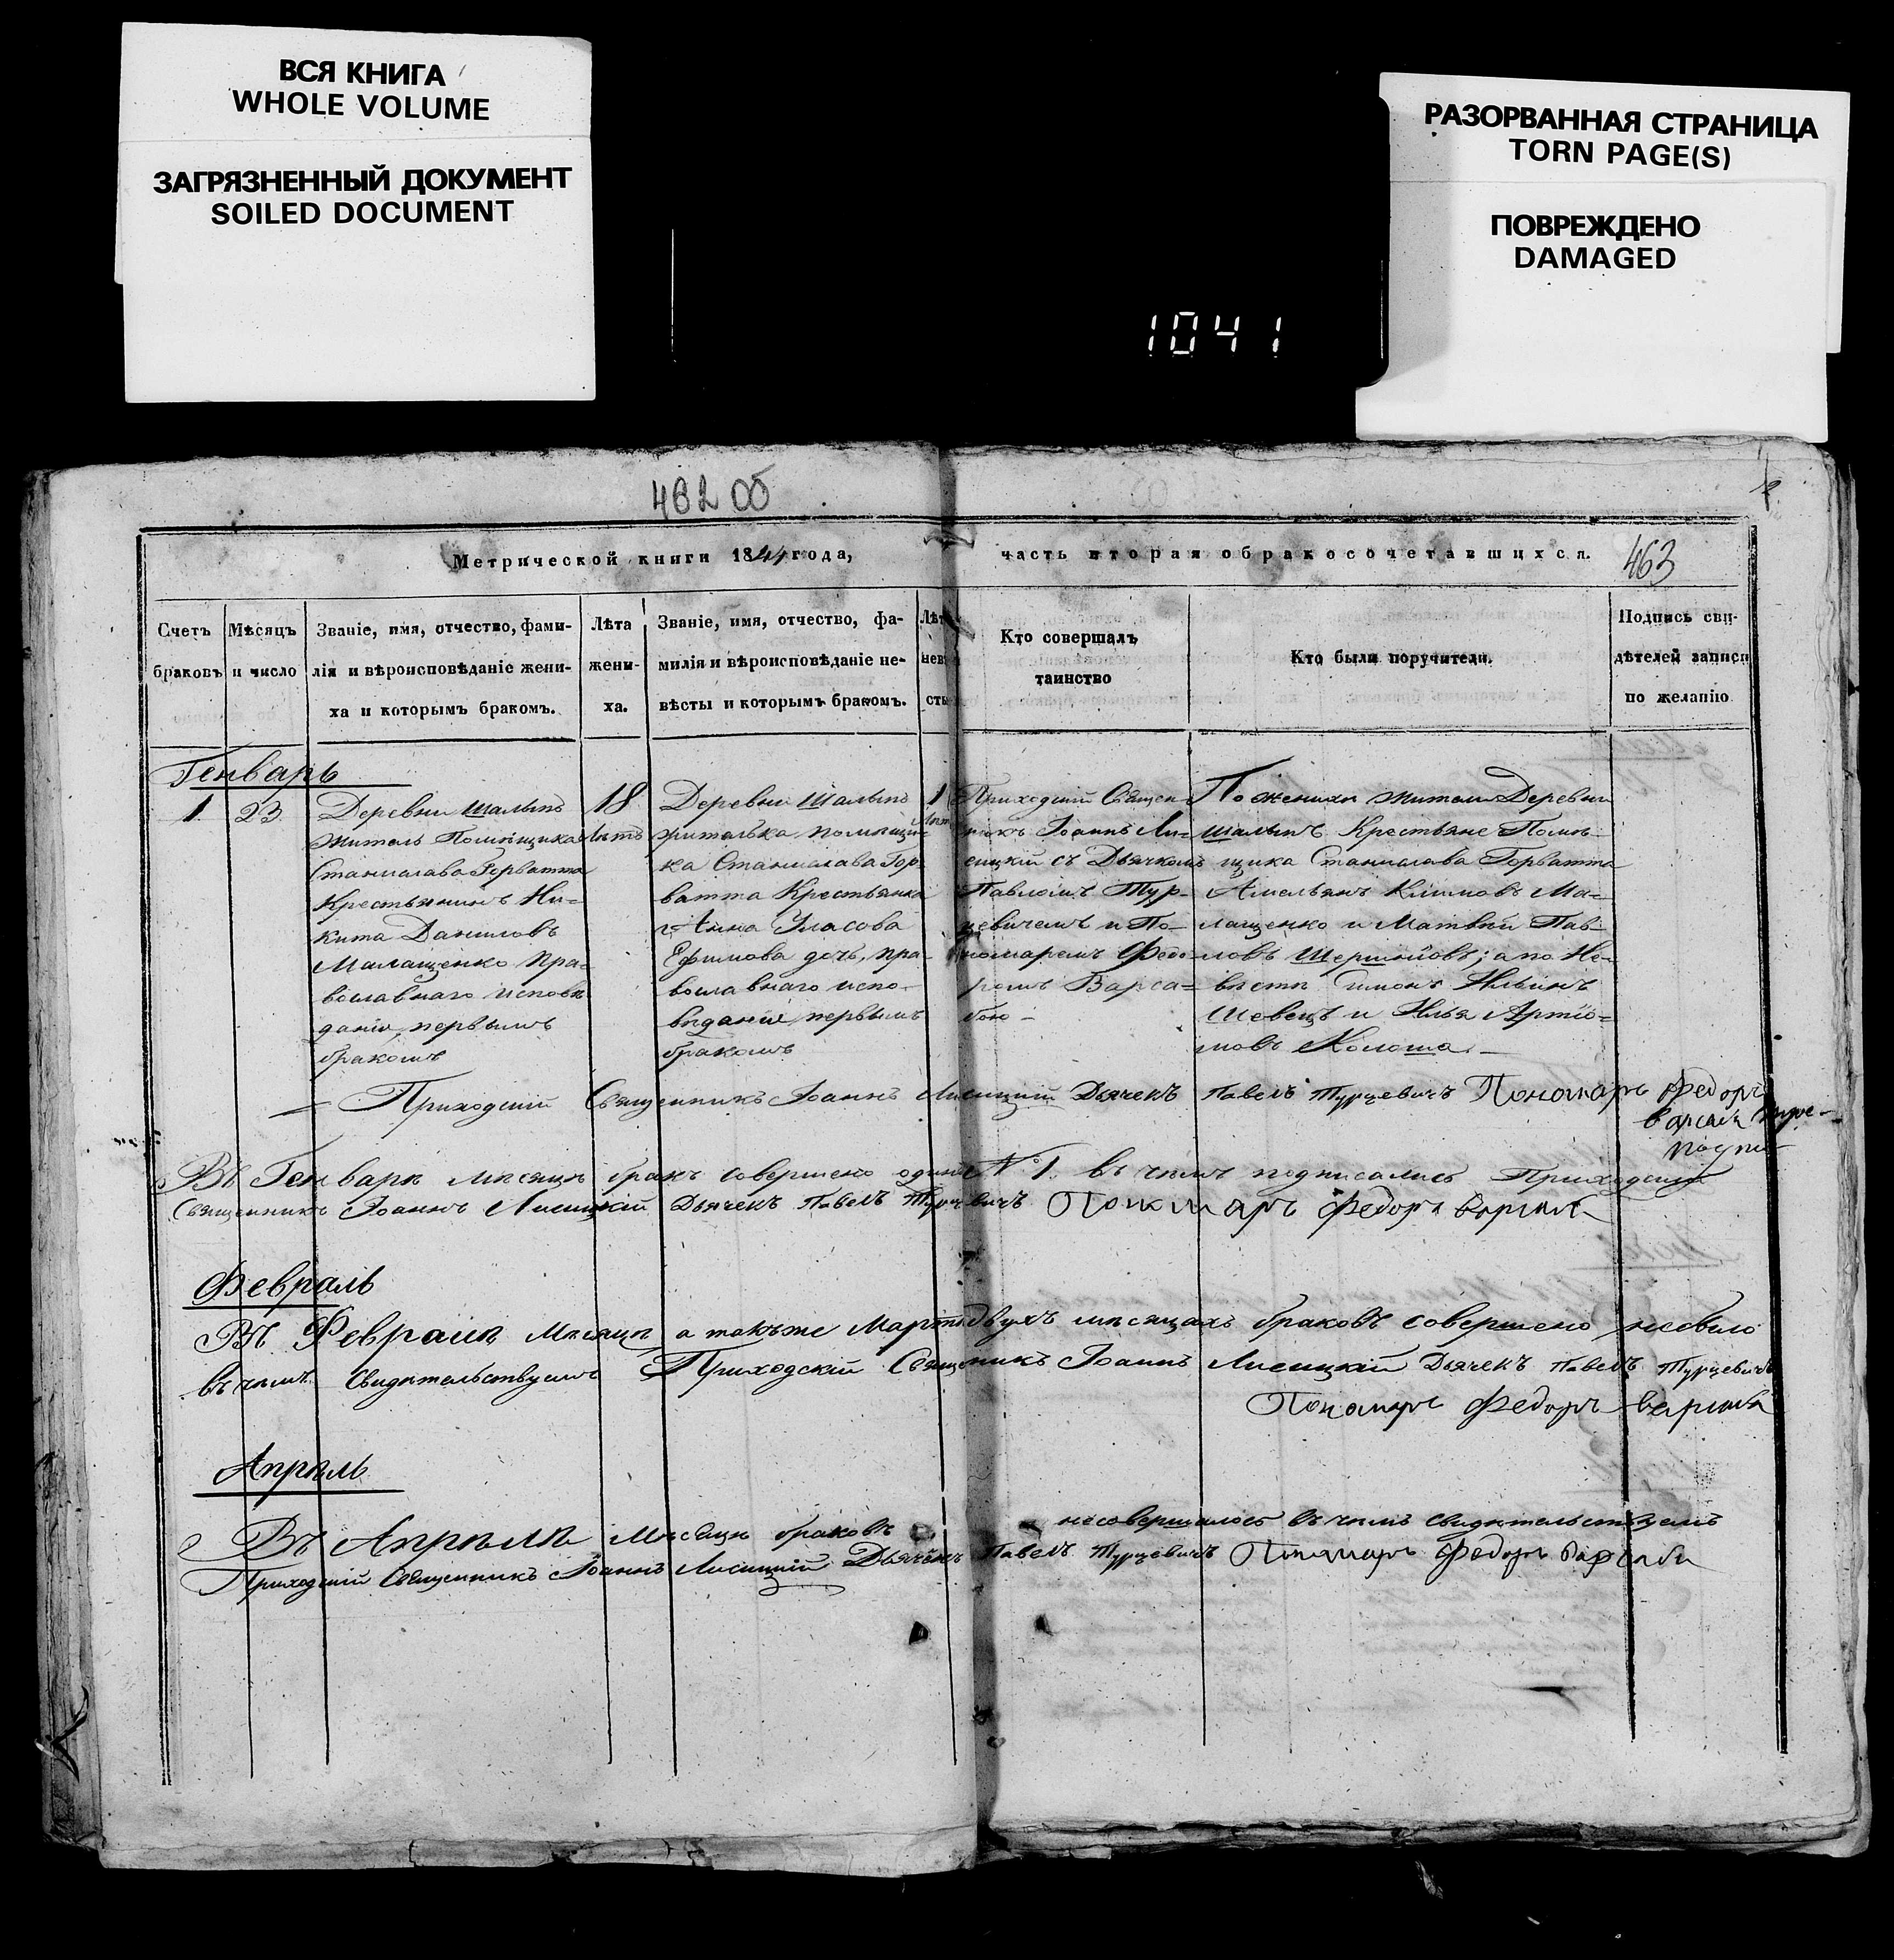 ВСЯ КНИГА
WHOLE VOLUME
ЗАГРЯЗНЕННЫЙ ДОКУМЕНТ
SOILED DOCUMENT
РАЗОРВАННАЯ СТРАНИЦА
TORN PAGE(S)
ПОВРЕЖДЕНО
DAMAGED
1041
462 об
Метрической книги 1844 года,
часть вторая о бракосочетавшихся.
463
Счетъ
браковъ
Мѣсяцъ
и число
Званіе, имя, отчество, фами-
лія и вѣроисповѣданіе жени-
ха и которымъ бракомъ.
Лѣта
жени-
ха.
Званіе, имя, отчество, фа-
милія и вѣроисповѣданіе не-
вѣсты и которымъ бракомъ.
Лѣта
невѣ
сты
Кто совершалъ
таинство
Кто были поручители.
Подпись сви-
дѣтелей записи
по желанію
Генварь
1
23
Деревни Шалыпъ
житель Помѣщика
Станислава Горватта
Крестьянинъ Ни-
кита Даниловъ
Малащенко пра-
вославнаго исповѣ
данія, первымъ
бракомъ
18
лѣтъ
Деревни Шалыпъ
жителька помѣщи-
ка Станислава Гор
ватта Крестьянка
Анна Уласова
Ефимова дочь, пра-
вославнаго испо-
вѣданія первымъ
бракомъ
Приходскій Священ-
никъ Іоаннъ Ли-
сицкій съ Дьячкомъ
Павломъ Тур-
цевичемъ и По-
номаремъ Федо-
ромъ Варса-
бою -
По женихѣ жители Деревни
Шалыпъ Крестьяне Помѣ-
щика Станислава Горватта
Амельянъ Климовъ Ма-
лащенко и Матвѣй Пав-
ловъ; а по Не-
вѣстѣ Симонъ Ильинъ
Шевецъ и Илья Артіо-
мовъ Колоша. -
Приходскій Священникъ Іоаннъ Лисицкій Дьячекъ Павелъ Турцевичъ Пономарь Федоръ
Въ Генварѣ мѣсяцѣ бракъ совершено одинъ № 1. въ чемъ подписались Приходскій
Священникъ Іоаннъ Лисицкій Дьячекъ Павелъ Турцевичъ Пономарь Федоръ Варсаба
Февраль
Въ Февралѣ мѣсяцѣ а такъже Мартѣ двухъ мѣсяцахъ браковъ совершено небыло
въ чемъ свидѣтельствуемъ Приходскій Священникъ Іоаннъ Лисицкій Дьячекъ Павелъ Турцевичъ
Пономарь Федоръ Варсаба
Апрѣль
Въ Апрѣлѣ Мѣсяцѣ браковъ несовершалось въ чемъ свидѣтельствуемъ
Приходскій Священникъ Іоаннъ Лисицкій Дьячекъ Павелъ Турцевичъ Пономарь Федоръ Варсаба